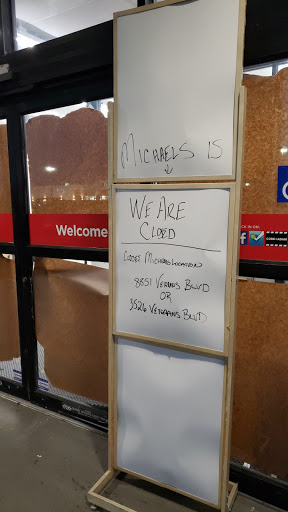 MICHAELS IS
↓
WE ARE
CLOED
MICHAELS LOCATION
8851 VETRNS BLVD
OR
3526 VETERANS BLVD
Welcome
CK IN ON: